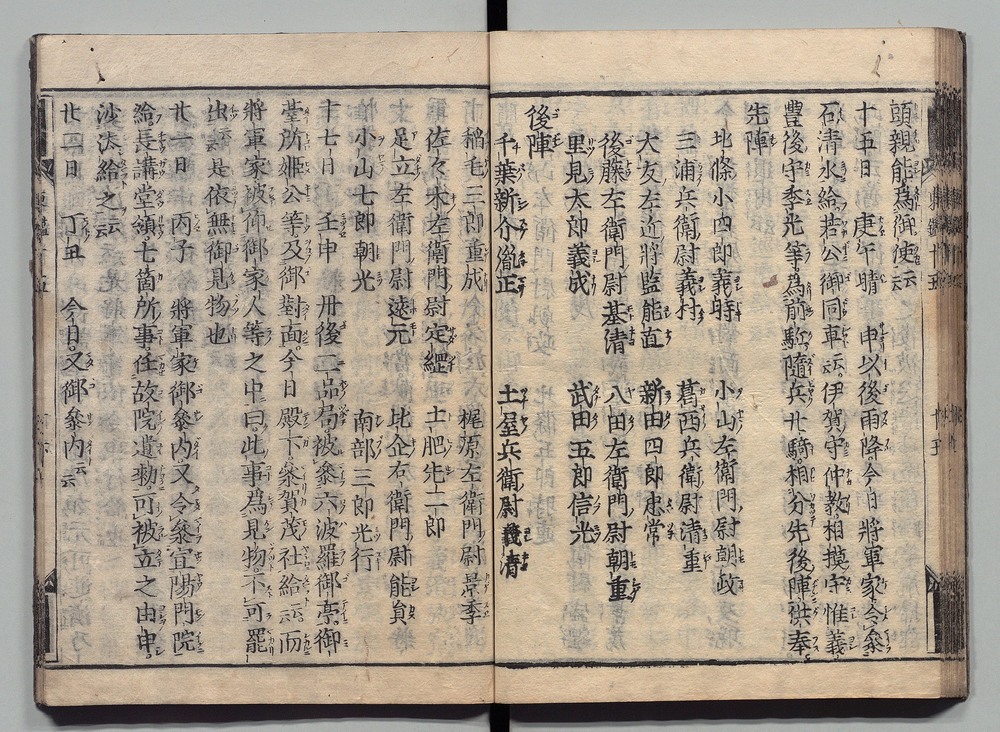 頭親能爲御使云云
十五日 庚午晴 申以後雨降今日將軍家令參
石清水給若公御同車云云伊賀守仲教相摸守惟義
豐後守季光等爲前駈隨兵廿騎相分先後陣供奉
先陣
北條小四郎義時 小山左衞門尉朝政
三浦兵衞尉義村 葛西兵衞尉清重
大友左近將監能直 新田四郎忠常
後藤左衞門尉基清 八田左衞門尉朝重
里見太郎義成 武田五郎信光
後陣
千葉新介胤正 土屋兵衞尉義清
稻毛三郎重成 梶原左衞門尉景季
佐々木左衞門尉定綱 土肥先二郎
足立左衞門尉遠元 比企右衞門尉能員
小山七郎朝光 南部三郎光行
十七日 壬申 丹後二品局被參六波羅御亭御
臺所姫公等及御對面。今日殿下參賀茂社給云云而
將軍家被仰御家人等之中曰。此事爲見物不可罷
出云云是依無御見物也
廿一日 丙子 將軍家御參內又令參宜陽門院
給。長講堂領七箇所事任故院遺勅。可被立之由申。
沙汰給之云云
廿二日 丁丑 今日。又御參內云云